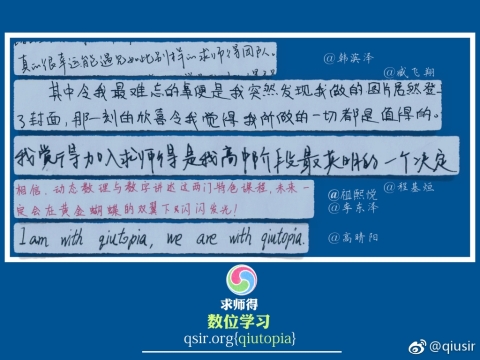 真的很幸运能遇见如此别样的求师得团队。
@韩滨泽
@咸飞翔
其中令我最难忘的事便是我突然发现我做的图片居然登
了封面，那一刻的欣喜令我觉得我所做的一切都是值得的。
我觉得加入求师得是我高中阶段最英明的一个决定
@程基烜
相信，动态数理与数字讲述这两门特色课程，未来一
定会在黄金蝴蝶的双翼下闪闪发光！
@祖熙悦
@李东泽
I am with qiutopia, we are with qiutopia.
@高晴阳
求师得
数位学习
qsir.org{qiutopia}
@qiusir